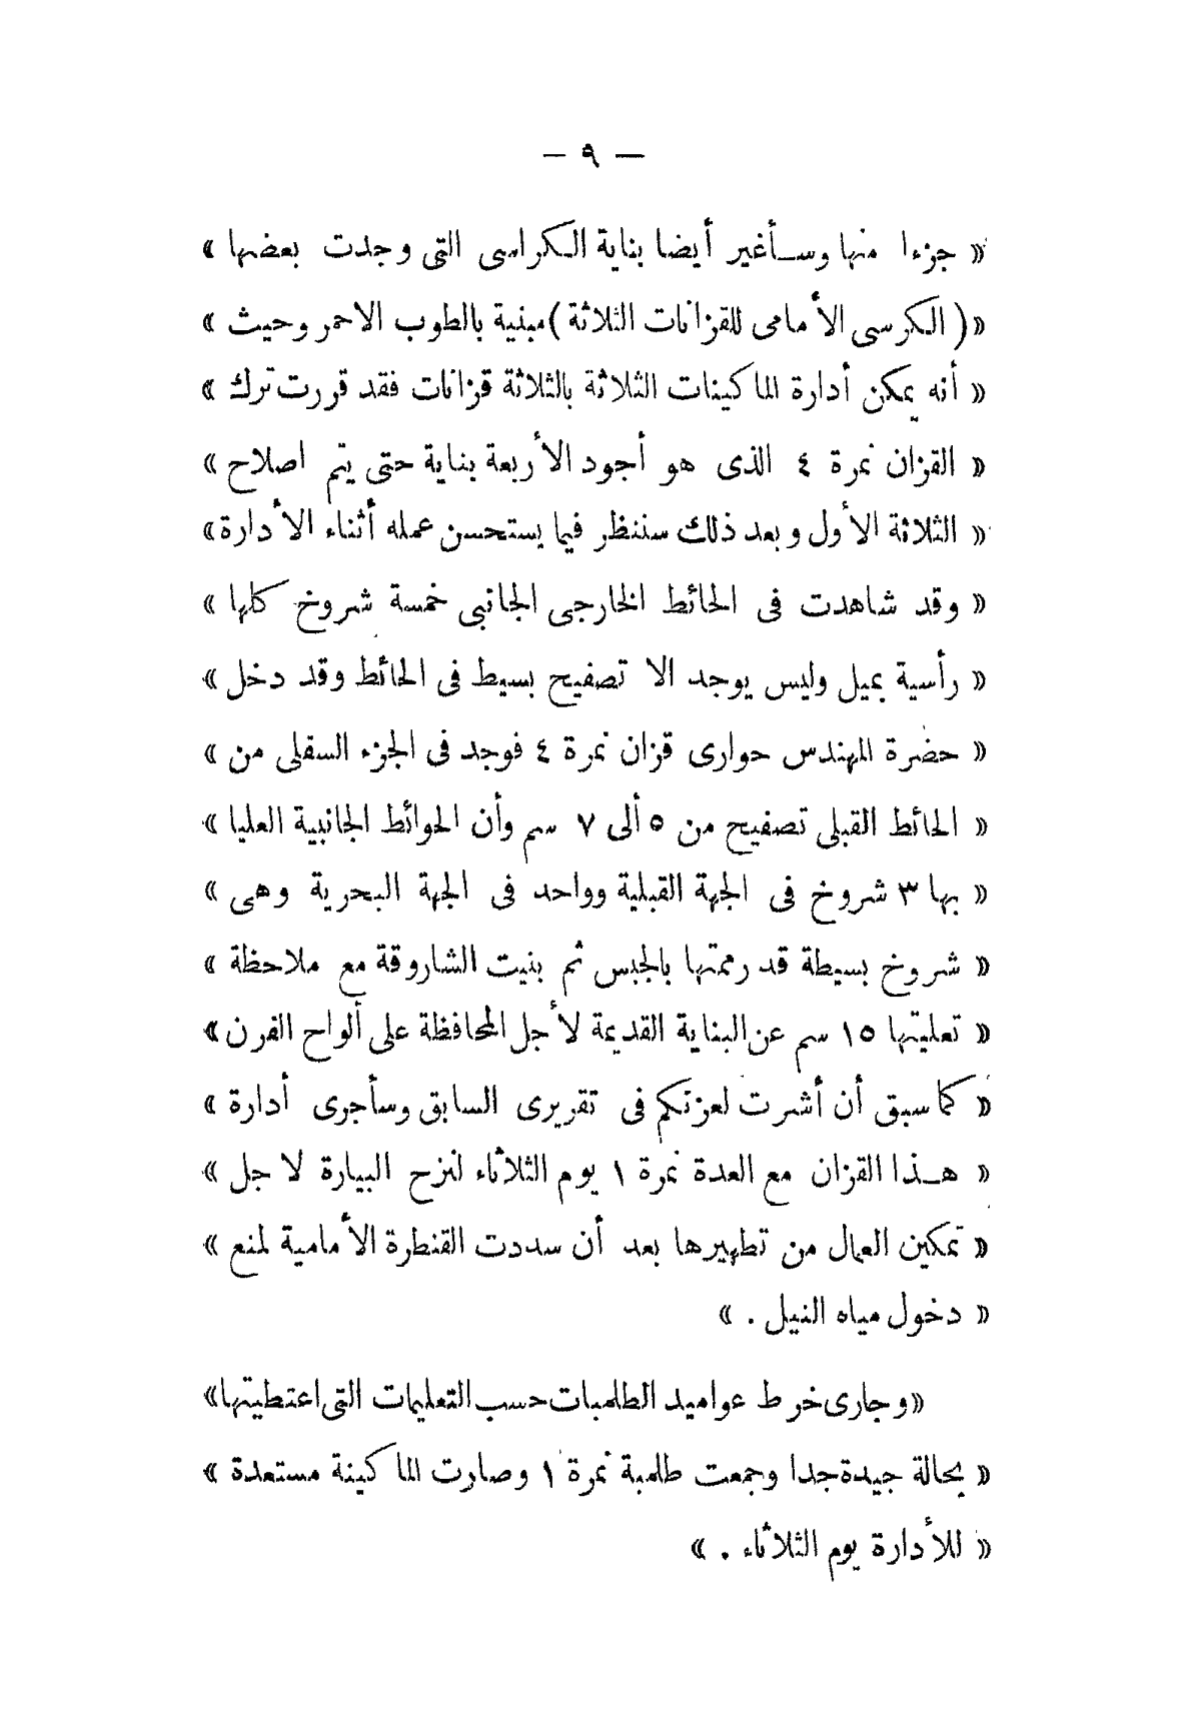 — ٩ —
« جزءا منها وسأغير أيضا بناية الكراسى التى وجدت بعضها »
« (الكرسى الأمامى للقزانات الثلاثة) مبنية بالطوب الاحمر وحيث »
« أنه يمكن أدارة الماكينات الثلاثة بالثلاثة قزانات فقد قررت ترك »
« القزان نمرة ٤ الذى هو أجود الأربعة بناية حتى يتم اصلاح »
« الثلاثة الأول وبعد ذلك سننظر فيما يستحسن عمله أثناء الأدارة »
« وقد شاهدت فى الحائط الخارجى الجانبى خمسة شروخ كلها »
« رأسية بميل وليس يوجد الا تصفيح بسيط فى الحائط وقد دخل »
« حضرة المهندس حوارى قزان نمرة ٤ فوجد فى الجزء السفلى من »
« الحائط القبلى تصفيح من ٥ ألى ٧ سم وأن الحوائط الجانبية العليا »
« بها ٣ شروخ فى الجهة القبلية وواحد فى الجهة البحرية وهى »
« شروخ بسيطة قد رممتها بالجبس ثم بنيت الشاروقة مع ملاحظة »
« تعليتها ١٥ سم عن البناية القديمة لأجل المحافظة على ألواح الفرن »
« كما سبق أن أشرت لعزتكم فى تقريرى السابق وسأجرى أدارة »
« هـذا القزان مع العدة نمرة ١ يوم الثلاثاء لنزح البيارة لاجل »
« تمكين العمال من تطهيرها بعد أن سددت القنطرة الأمامية لمنع »
« دخول مياه النيل . »
« وجارى خرط عواميد الطلمبات حسب التعليمات التى اعتطيتها »
« بحالة جيدة جدا وجمعت طلمبة نمرة ١ وصارت الماكينة مستعدة »
« للأدارة يوم الثلاثاء . »